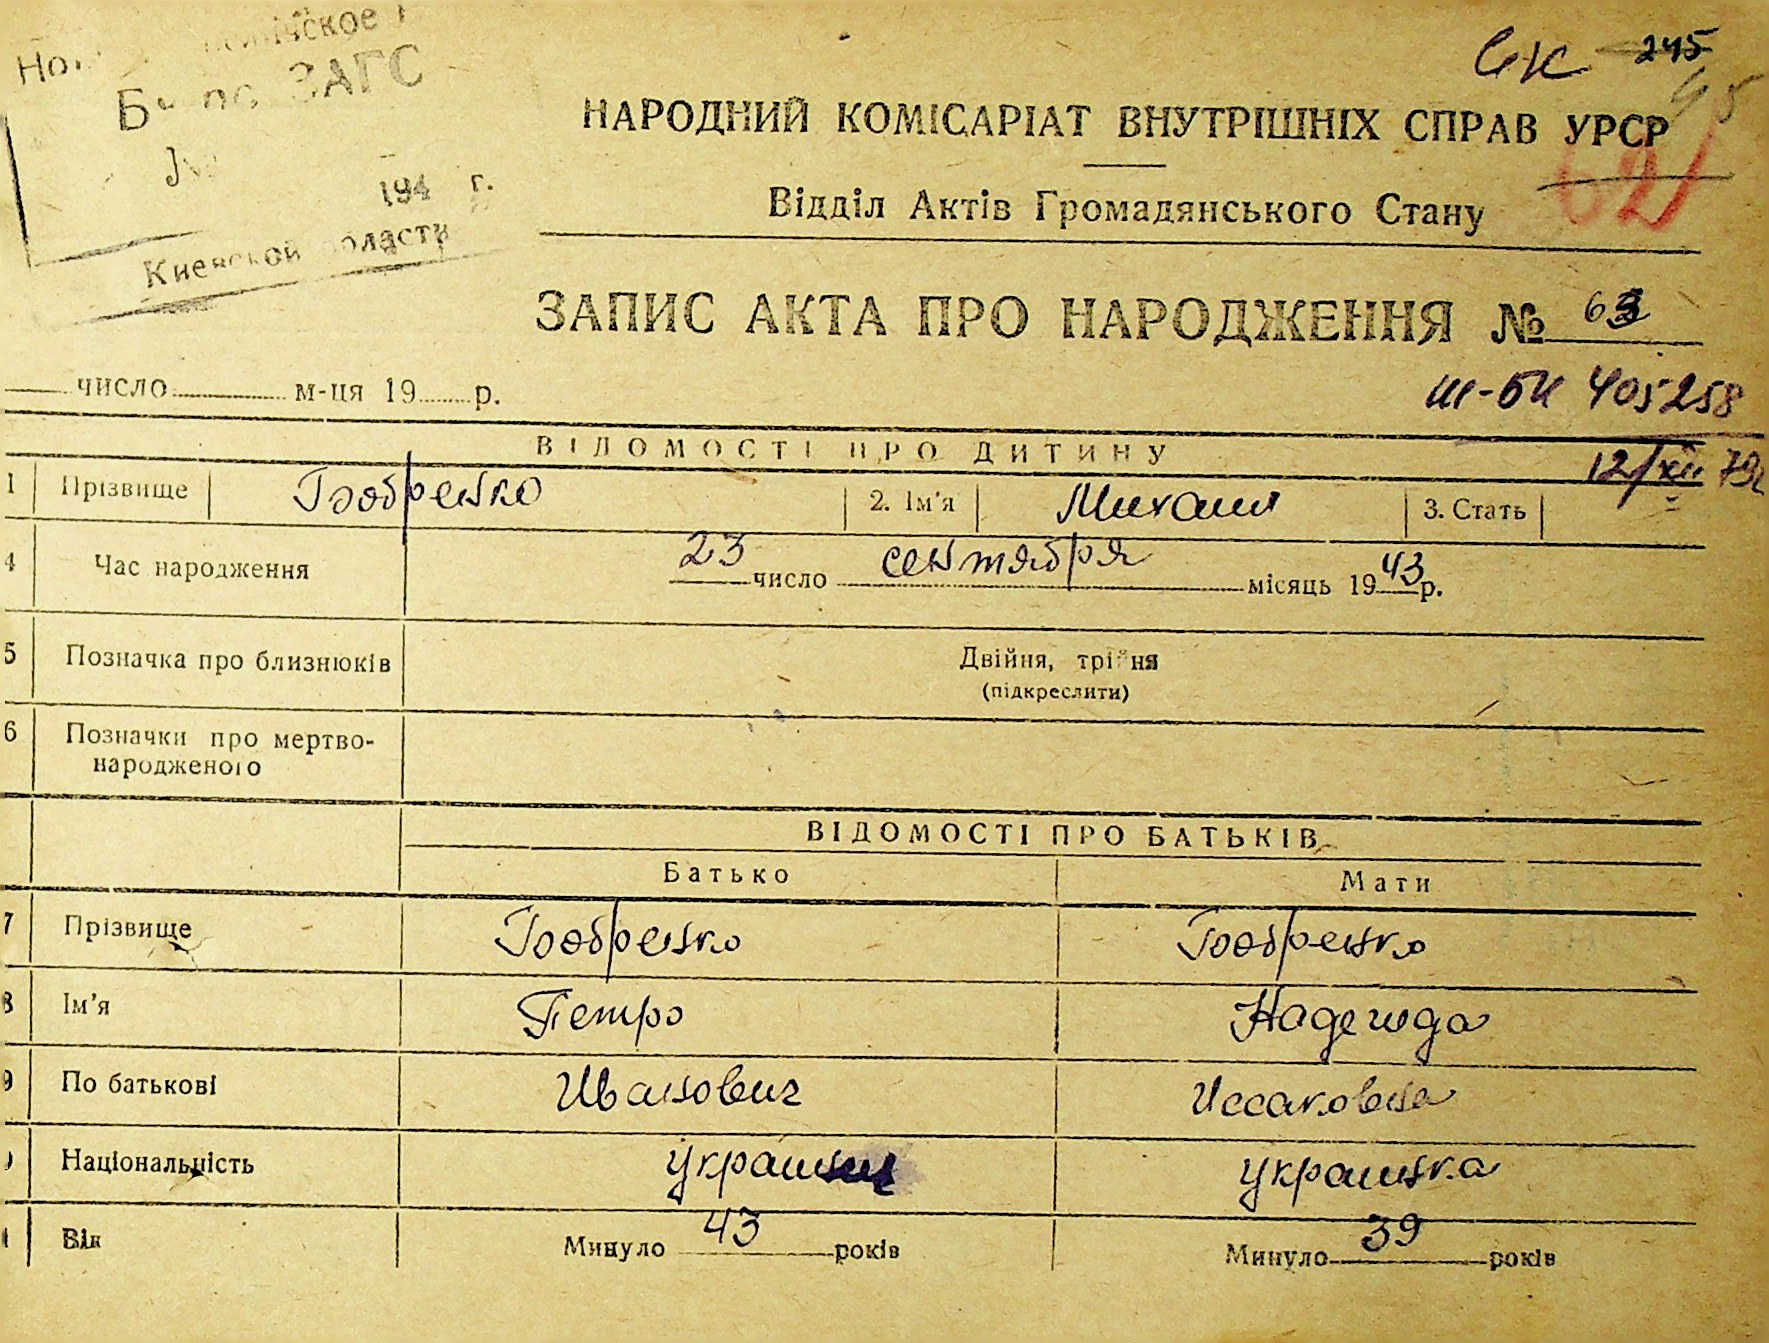 ЗАГС
194 г.
Киевской области
Ск 245
НАРОДНИЙ КОМІСАРІАТ ВНУТРІШНІХ СПРАВ УРСР
62
Відділ Актів Громадянського Стану
ЗАПИС АКТА ПРО НАРОДЖЕННЯ № 63
число м-ця 19 р.
III-БК 405258
12/XII 79г
ВІДОМОСТІ ПРО ДИТИНУ
1 Прізвище Бобренко 2. Ім'я Михаил 3. Стать
4 Час народження 23 число сентября місяць 1943 р.
5 Позначка про близнюків Двійня, трійня
(підкреслити)
6 Позначки про мертво-
народженого
ВІДОМОСТІ ПРО БАТЬКІВ
Батько Мати
7 Прізвище Бобренко Бобренко
8 Ім'я Петро Надежда
9 По батькові Иванович Иссаковна
Національність украинец украинка
Вік Минуло 43 років Минуло 39 років